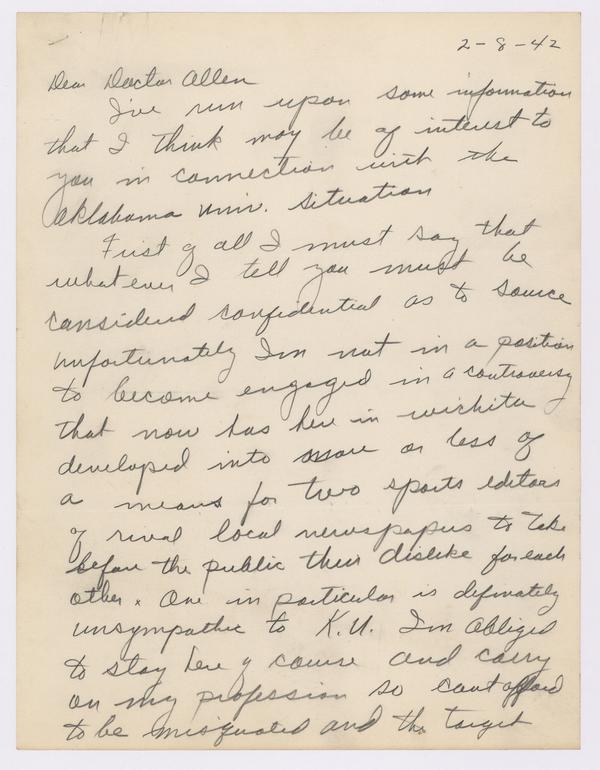 2-8-42
Dear Doctor Allen
I've run upon some information
that I think may be of interest to
you in connection with the
Oklahoma Univ. situation
First of all I must say that
whatever I tell you must be
considerd confidential as to source
unfortunately I'm not in a position
to become engaged in a controversy
that now has here in wichita
developed into more or less of
a means for two sports editors
of rival local newspapers to take
before the public their dislike for each
other. One in particular is definately
unsympathic to K.U. I'm obliged
to stay here of course and carry
on my profession so cant afford
to be misquoted and the target